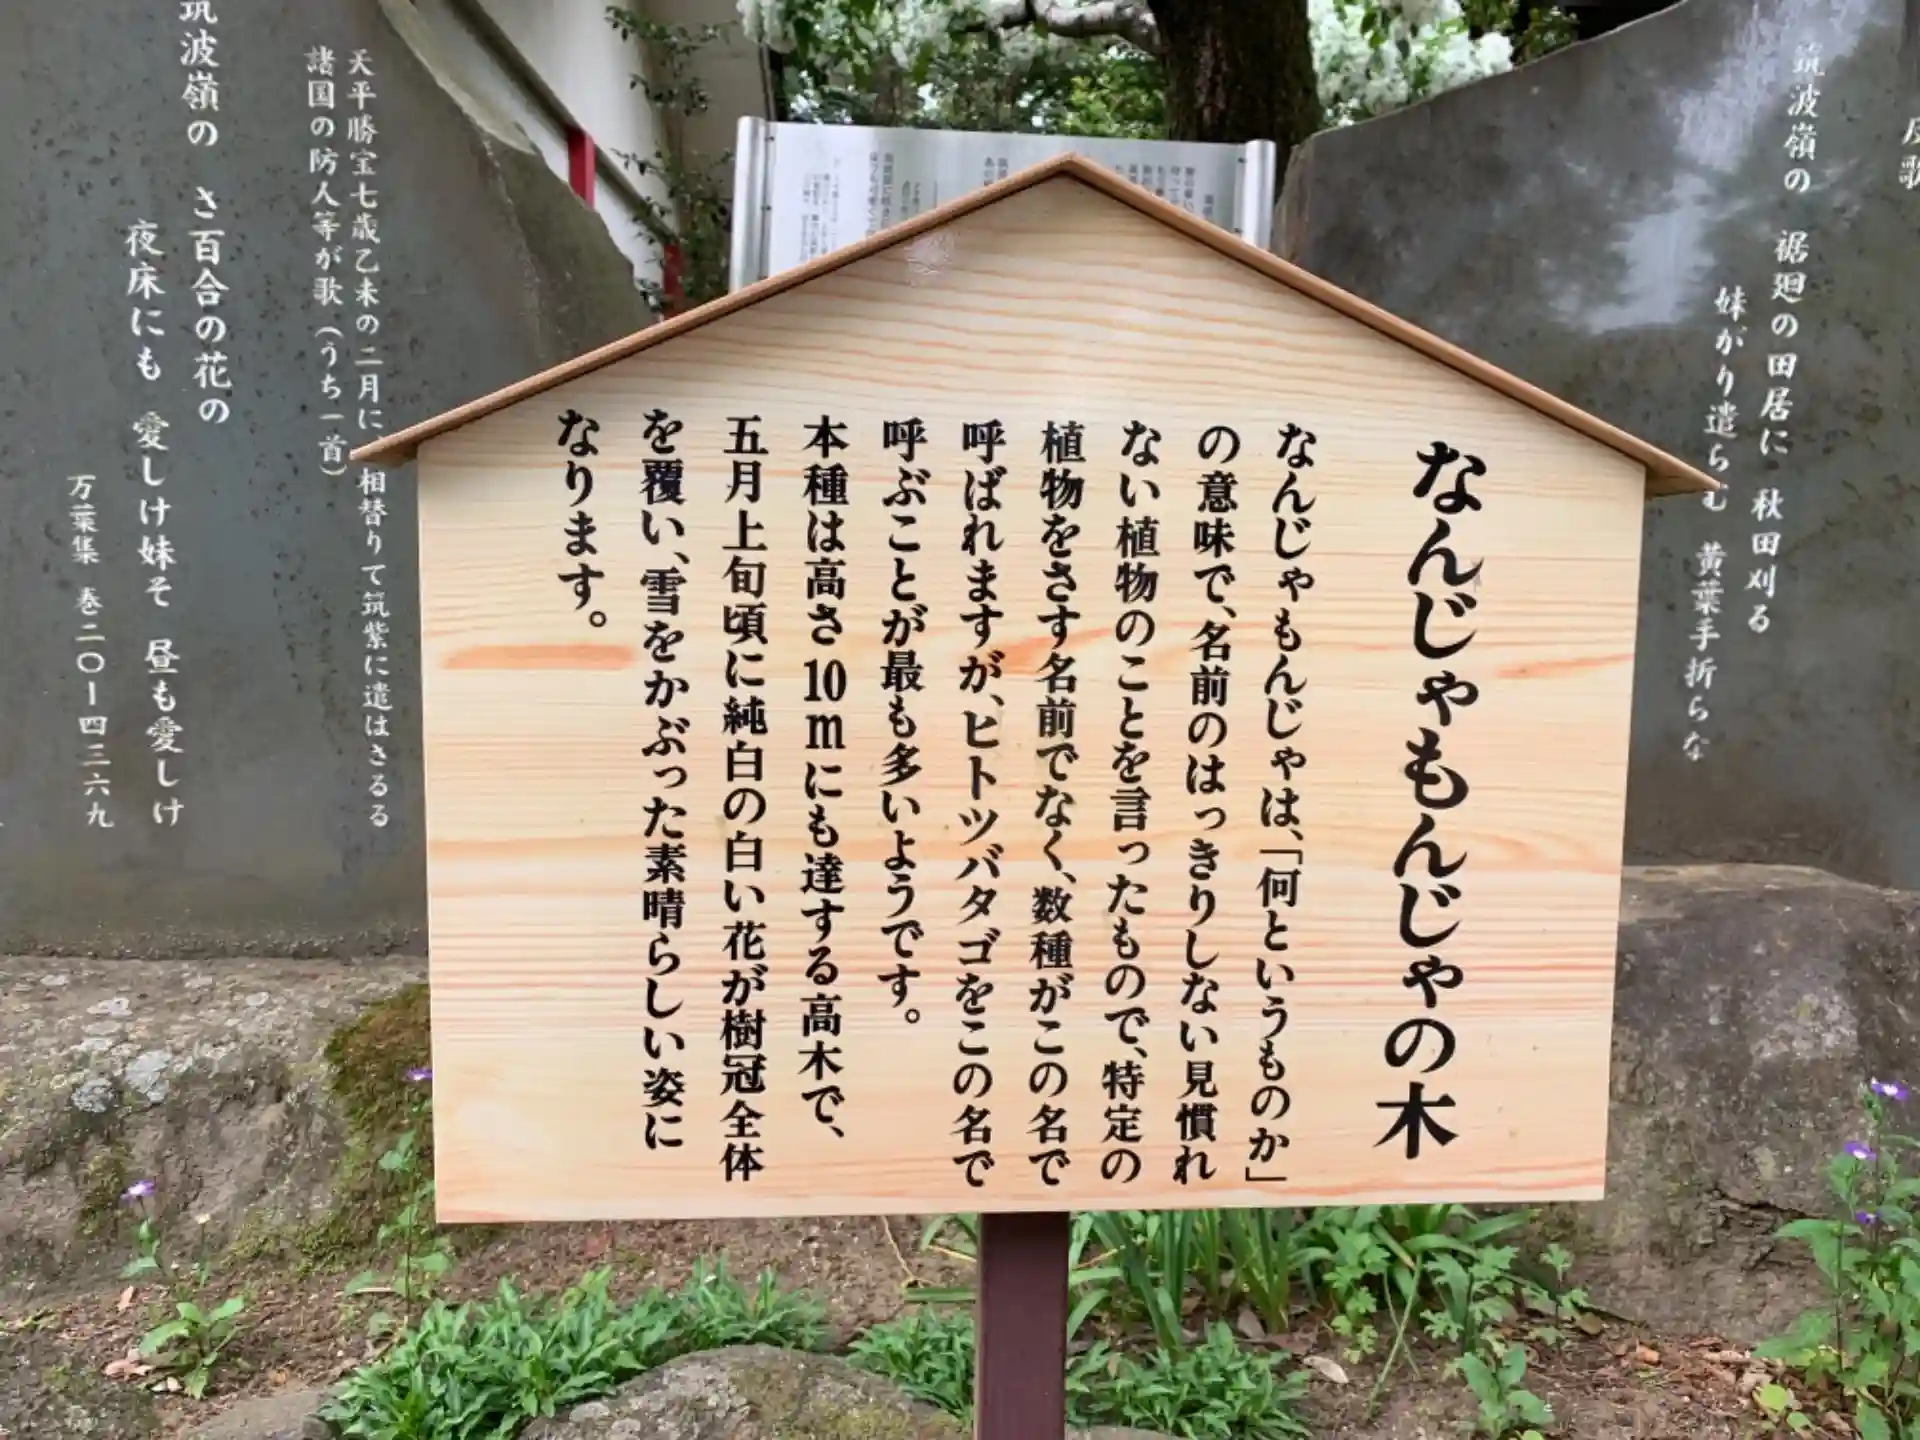 なんじゃもんじゃの木
なんじゃもんじゃは、「何というものか」
の意味で、名前のはっきりしない見慣れ
ない植物のことを言ったもので、特定の
植物をさす名前でなく、数種がこの名で
呼ばれますが、ヒトツバタゴをこの名で
呼ぶことが最も多いようです。
本種は高さ10mにも達する高木で、
五月上旬頃に純白の白い花が樹冠全体
を覆い、雪をかぶった素晴らしい姿に
なります。
反歌
筑波嶺の 裾廻の田居に 秋田刈る
妹がり遣らむ 黄葉手折らな
天平勝宝七歳乙未の二月に相替りて筑紫に遣はさるる
諸国の防人等が歌(うち一首)
筑波嶺の さ百合の花の
夜床にも 愛しけ妹そ 昼も愛しけ
万葉集 巻二〇ー四三六九